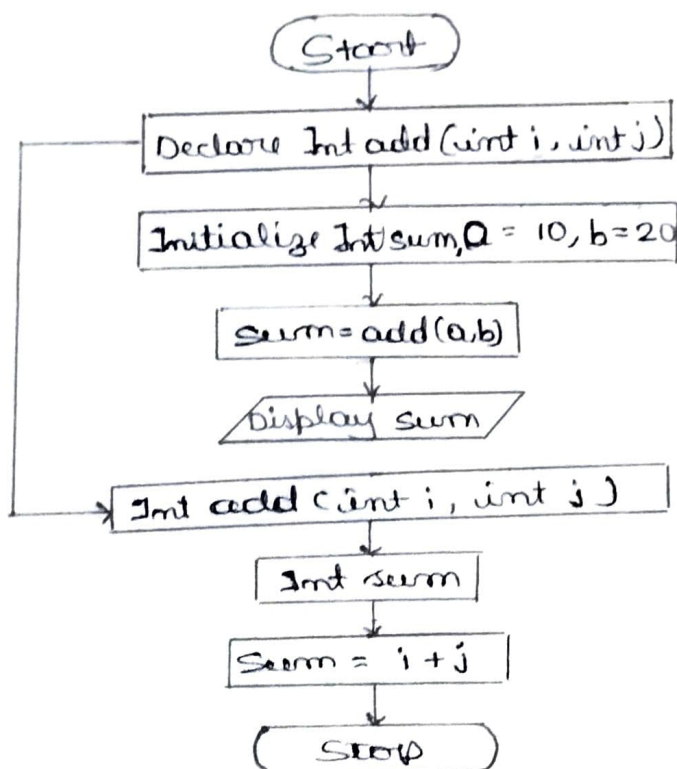 Start
Declare Int add(int i, int j)
Initialize Int sum, a = 10, b=20
sum=add(a,b)
Display sum
Int add (int i, int j)
Int sum
Sum = i + j
Stop